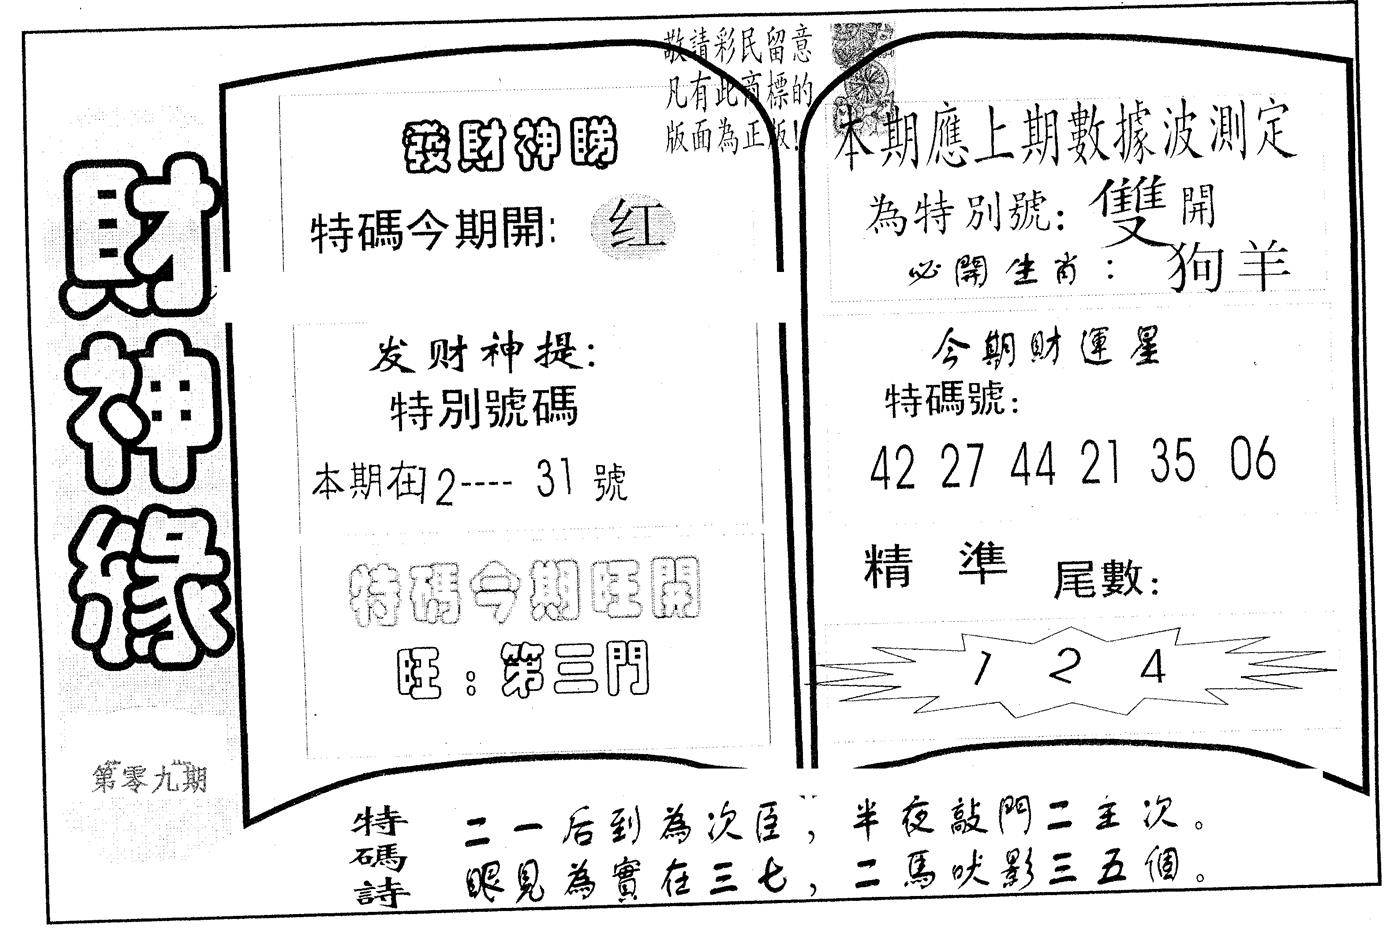 財神緣
第零九期
敬請彩民留意
凡有此商標的
版面為正版!
發財神睇
特碼今期開: 红
发财神提:
特別號碼
本期在12---- 31 號
特碼今期旺開
旺: 第三門
本期應上期數據波測定
為特別號: 雙開
必開生肖: 狗羊
今期財運星
特碼號:
42 27 44 21 35 06
精準 尾數:
1 2 4
特碼詩
二一后到為次臣, 半夜敲門二主次。
眼見為實在三七, 二馬吠影三五個。